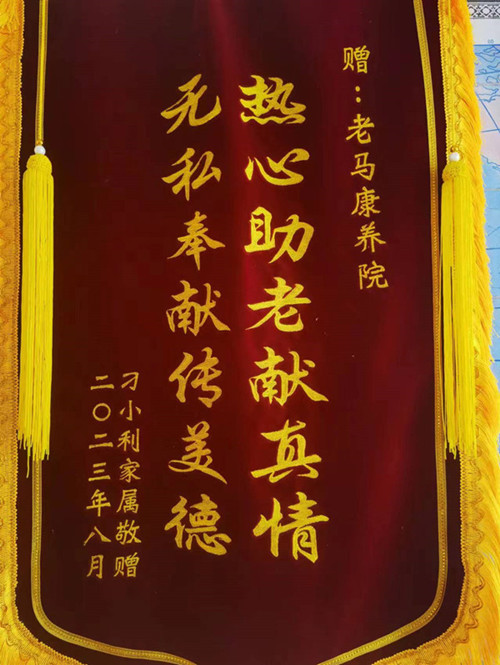 赠：老马康养院
热心助老献真情
无私奉献传美德
刁小利家属敬赠
二〇二三年八月